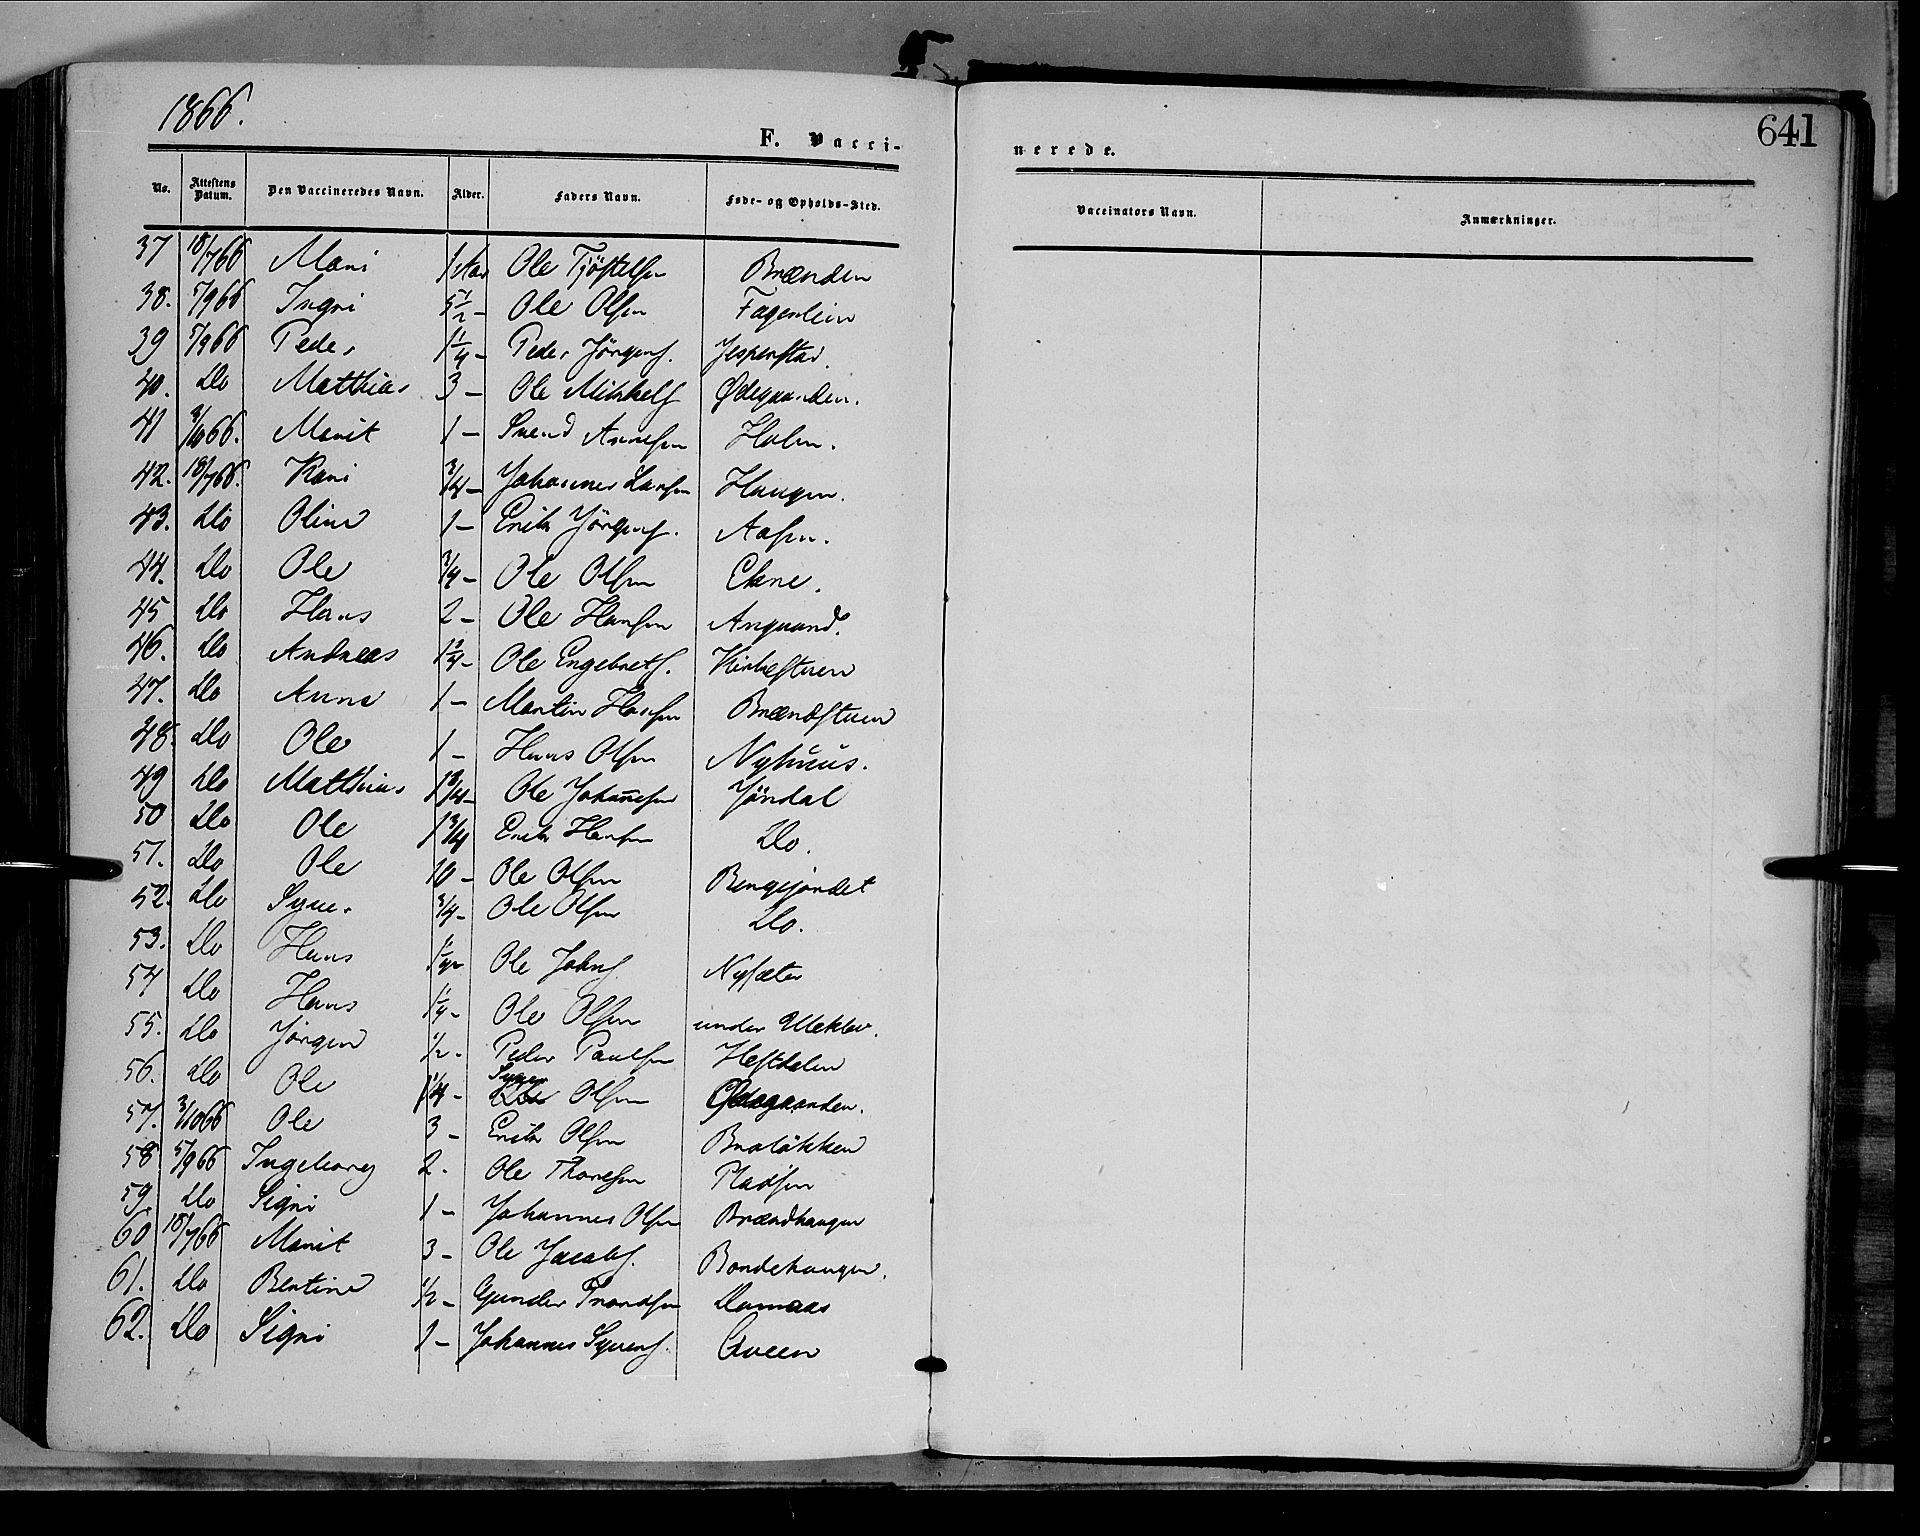 1866.
641
F. Vacci-
nerede.
No. Attestens Datum. Den Vaccineredes Navn. Alder. Faders Navn. Føde- og Opholds-Sted. Vaccinators Navn. Anmærkninger.
37 18/7 66 Mari 1 Aar Ole Tjöstelsen Brænden
38. 5/9 66 Ingri 5 1/2 - Ole Olsen Fagerlien
39 5/9 66 Peder 1 1/4 - Peder Jörgens. Jesperstad.
40. Do Matthias 3 - Ole Mikkels Ødegaarden.
41 3/10 66. Marit 1 - Svend Annesen Holen.
42. 18/7 66. Kari 3/4 - Johannes Larsen Haugen.
43. Do Oline 1 - Erik Jörgens. Aasen.
44. Do Ole 3/4 - Ole Olsen Ekne.
45 Do Hans 2 - Ole Hansen Angaard.
46. Do Andreas 1 3/4 - Ole Engebrets. Kirkestuen
47. Do Anne 1 - Martin Hansen Brændstuen
48. Do Ole 1 - Hans Olsen Nyhuus.
49 Do Matthias 1 3/4 - Ole Johannesen Jöndal
50 Do Ole 1 3/4 Erik Hansen Do.
51. Do Ole 10 - Ole Olsen Bergejordet
52. Do Syver 3/4 - Ole Olsen Do.
53. Do Hans 1 1/2 Ole Johns Nysæter
54 Do Hans 1 1/4 - Ole Olsen under Uleklev.
55. Do Jörgen 1/2 - Peder Paulsen Hestdalen
56. Do Ole 1/4 - Syver Olsen Ødegaarden.
57. 3/10 66 Ole 3 - Erik Olsen Bratløkken
58 5/9 66 Ingeborg 2. Ole Thoresen Pladsen
59. Do Sigri 1 - Johannes Olsen Brændhaugen
60 18/7 66 Marit 3 - Ole Jacobs. Bondehaugen.
61. Do Bertine 1/2 - Gunder Trondsen Domaas
62. Do Sigri 1 - Johannes Syvers. Qveen